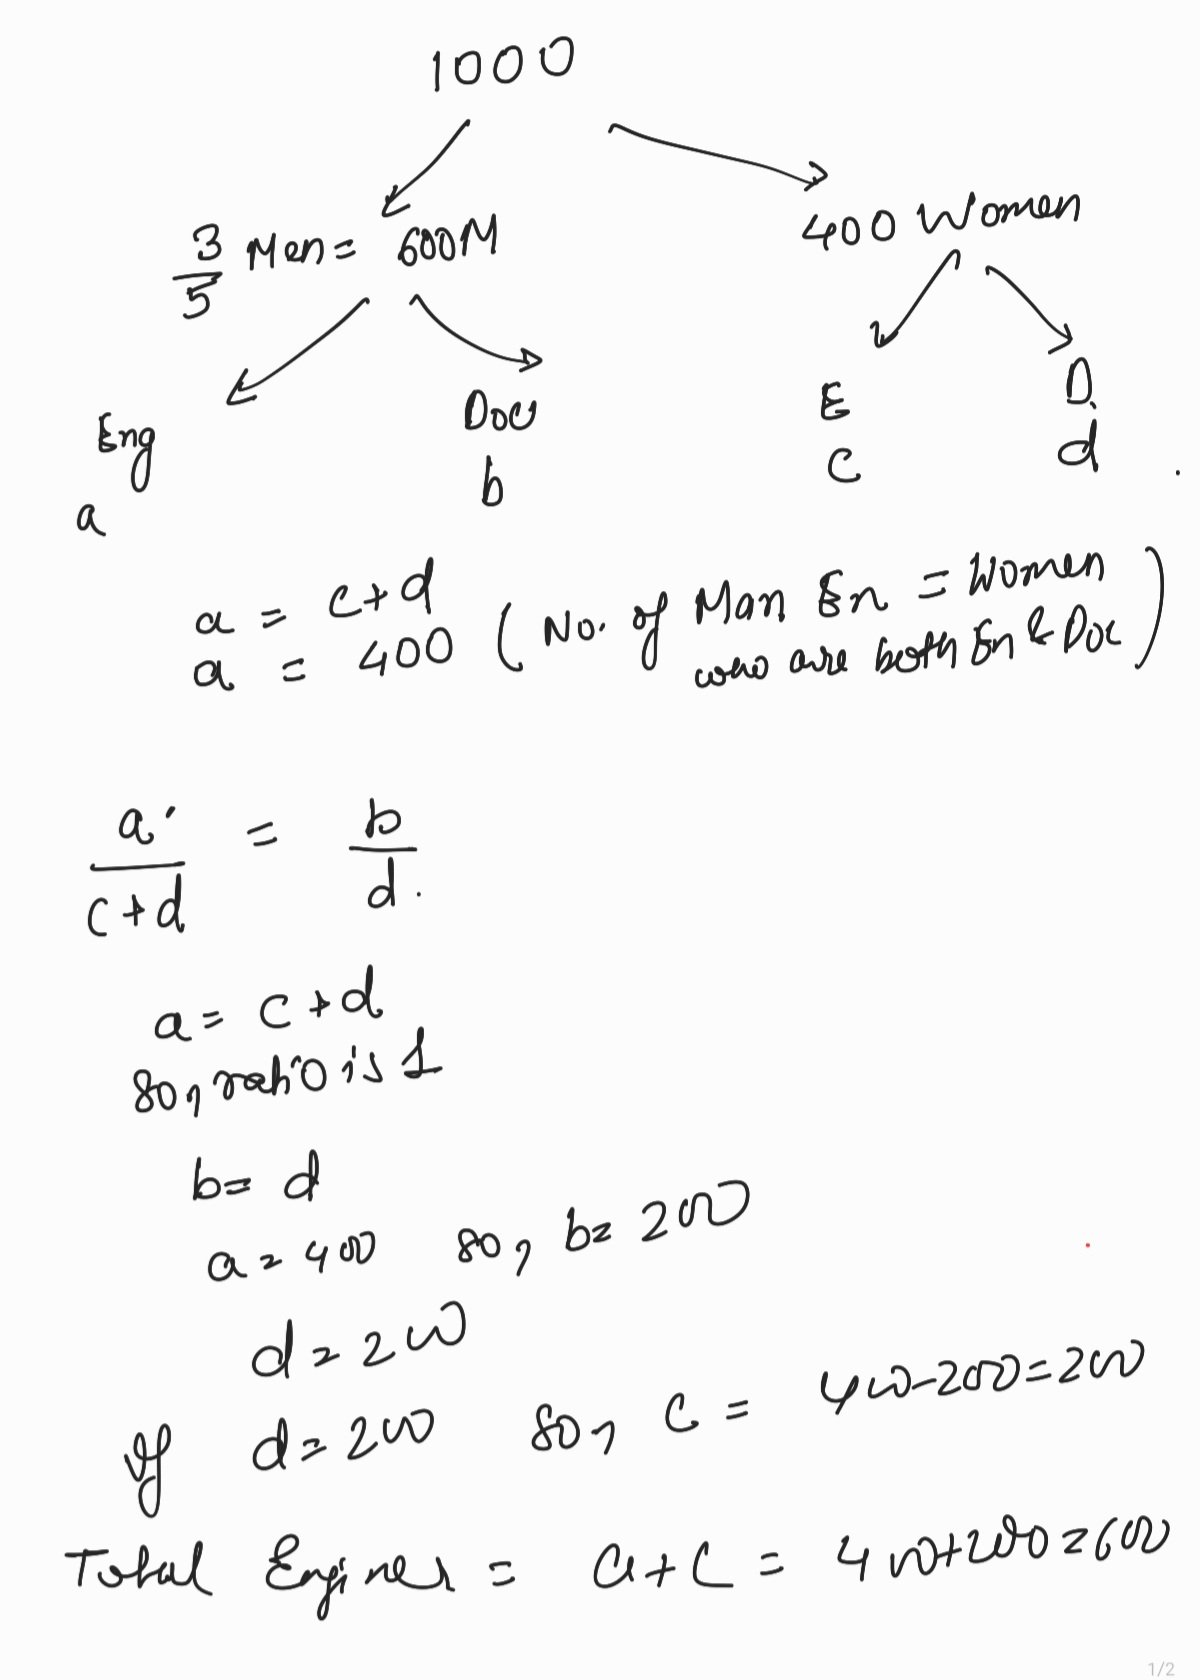 1000
3/5 Men = 600M
400 Women
Eng
a
Doc
b
E
c
D.
d
a = c+d
a = 400 ( No. of Man En = Women
who are both En & Doc )
a / c+d = b / d.
a = c+d
So, ratio is 1
b = d
a = 400 So, b = 200
d = 200
If d = 200 So, c = 400-200=200
Total Enginer = a+c = 400+200=600
1/2